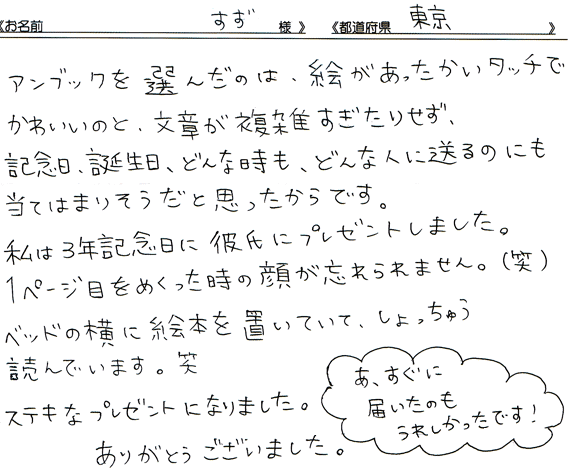 《お名前 すず 様》 《都道府県 東京 》
アンブックを選んだのは、絵があったかいタッチで
かわいいのと、文章が複雑すぎたりせず、
記念日、誕生日、どんな時も、どんな人に送るのにも
当てはまりそうだと思ったからです。
私は3年記念日に彼氏にプレゼントしました。
1ページ目をめくった時の顔が忘れられません。(笑)
ベッドの横に絵本を置いていて、しょっちゅう
読んでいます。笑
ステキなプレゼントになりました。
ありがとうございました。
あ、すぐに
届いたのも
うれしかったです!